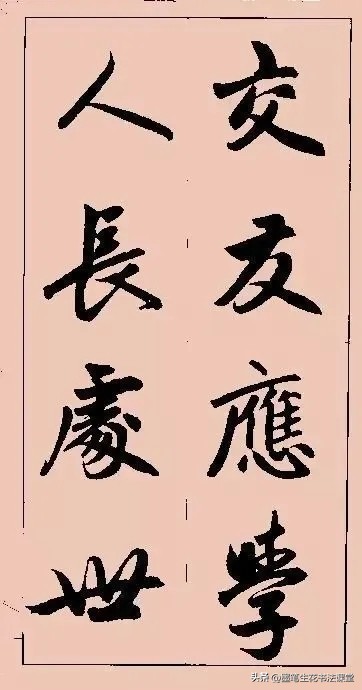 交友應學
人長處世
头条 @墨笔生花书法课堂